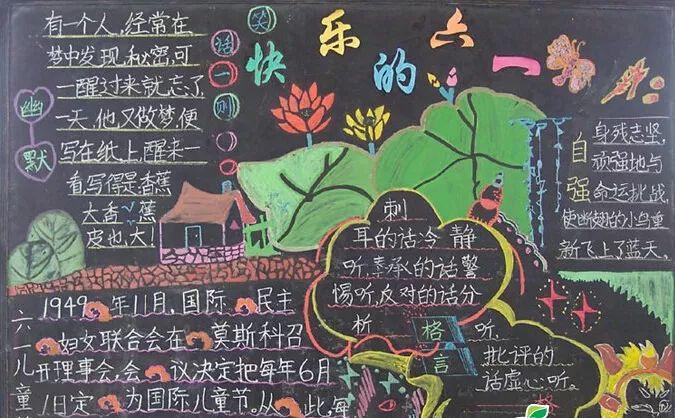 快乐的六一
笑话一则
幽默
有一个人,经常在
梦中发现秘密,可
一醒过来就忘了
一天,他又做梦,便
写在纸上,醒来一
看写得是香蕉
大香蕉
皮也大!
自强
身残志坚,
顽强地与
命运挑战,
使断翅的小鸟重
新飞上了蓝天。
刺
耳的话冷静
听,奉承的话警
惕听,反对的话分
析听,
批评的
话虚心听。
格言
六一儿童
1949年11月,国际民主
妇女联合会在莫斯科召
开理事会,会议决定把每年6月
1日定为国际儿童节。从此,每